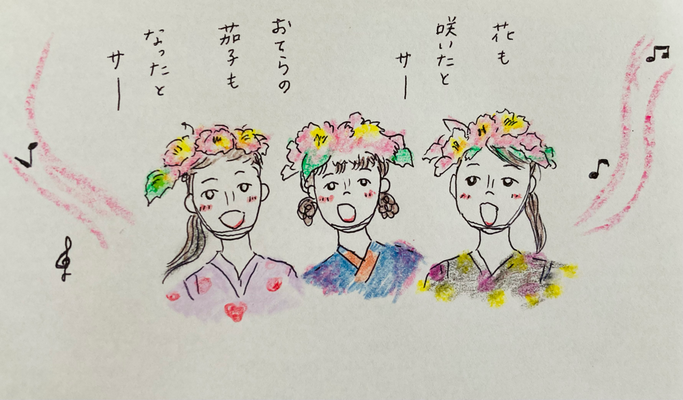 花も
咲いたと
サー
おてらの
茄子も
なったと
サー